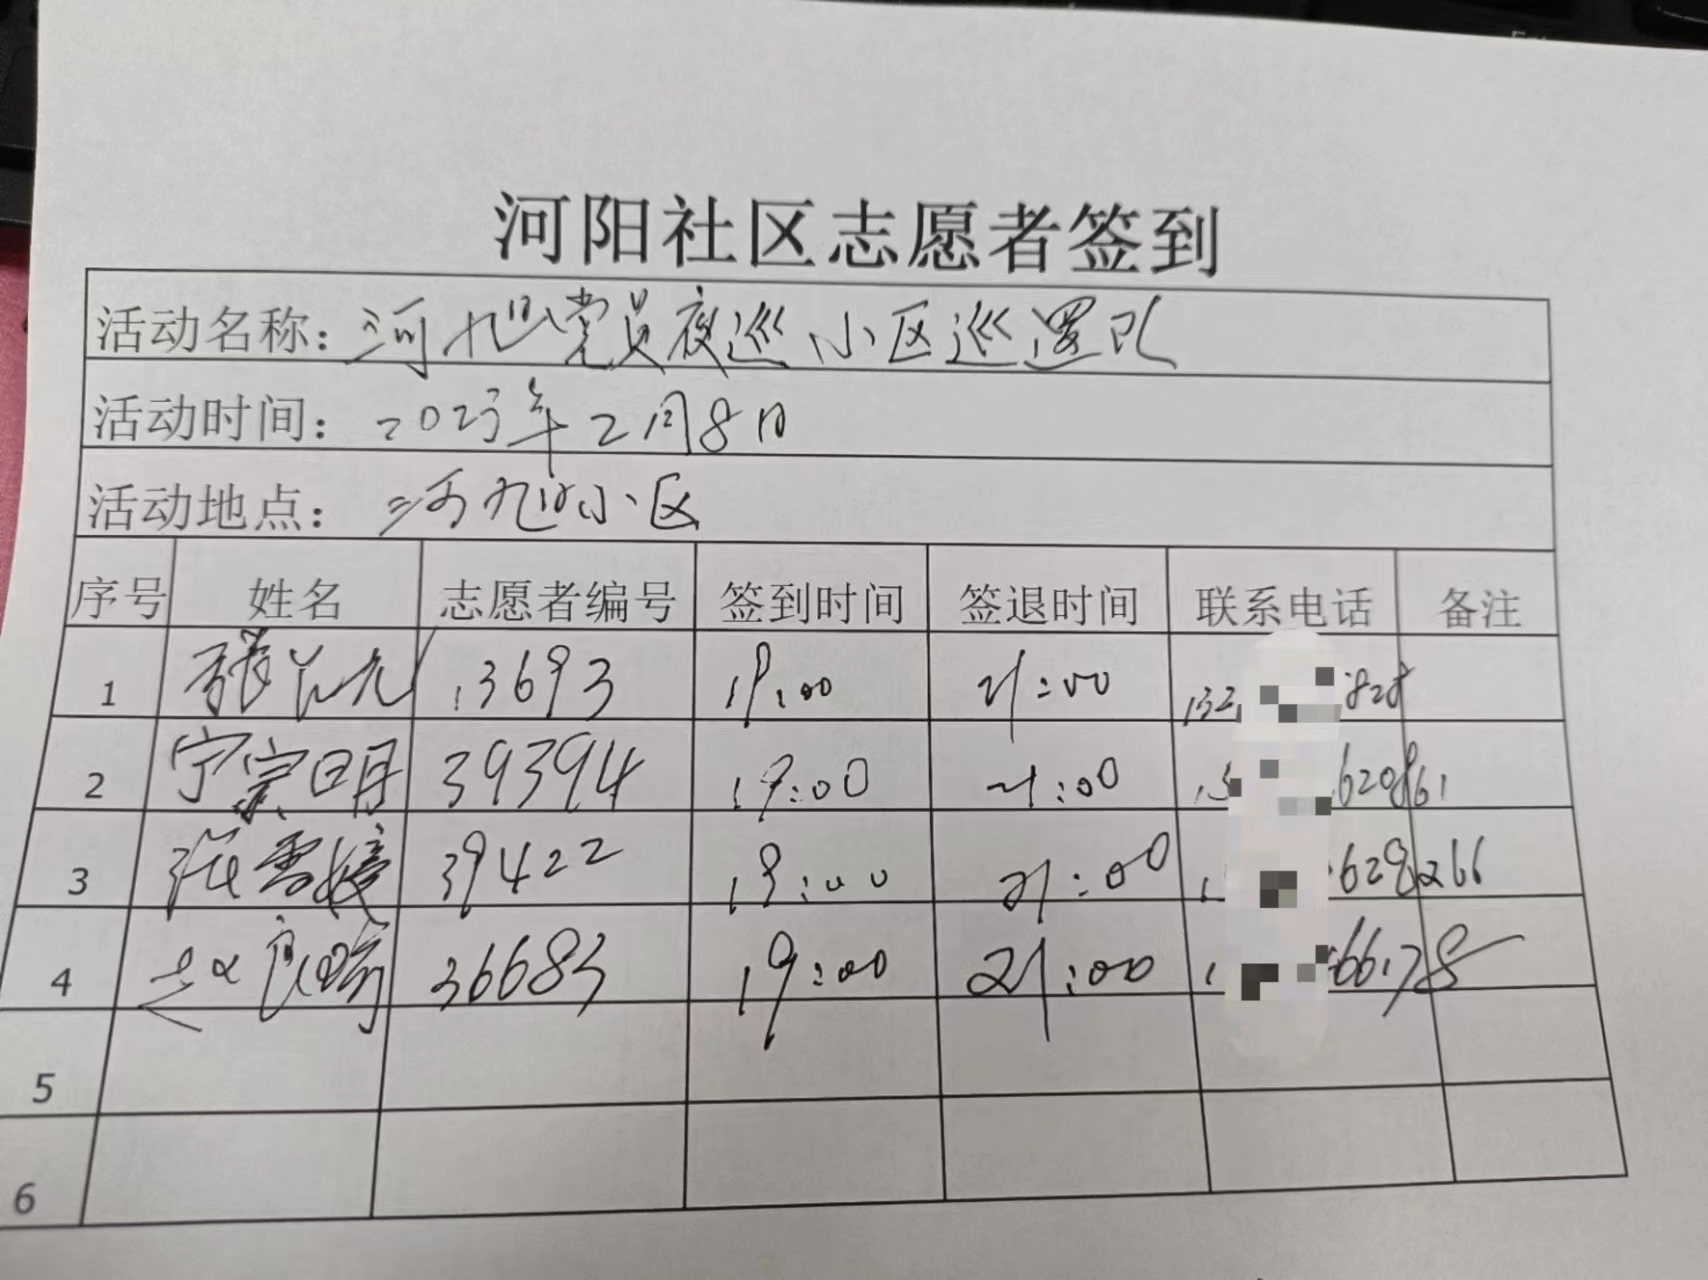 河阳社区志愿者签到
活动名称：河旭党员夜巡小区巡逻队
活动时间：2023年2月8日
活动地点：河旭小区
序号 姓名 志愿者编号 签到时间 签退时间 联系电话 备注
1 张 13693 19:00 21:00 132 828
2 宁宗明 39394 19:00 21:00 13 620861
3 张雪媛 39422 19:00 21:00 1 628266
4 赵 36683 19:00 21:00 1 66178
5
6